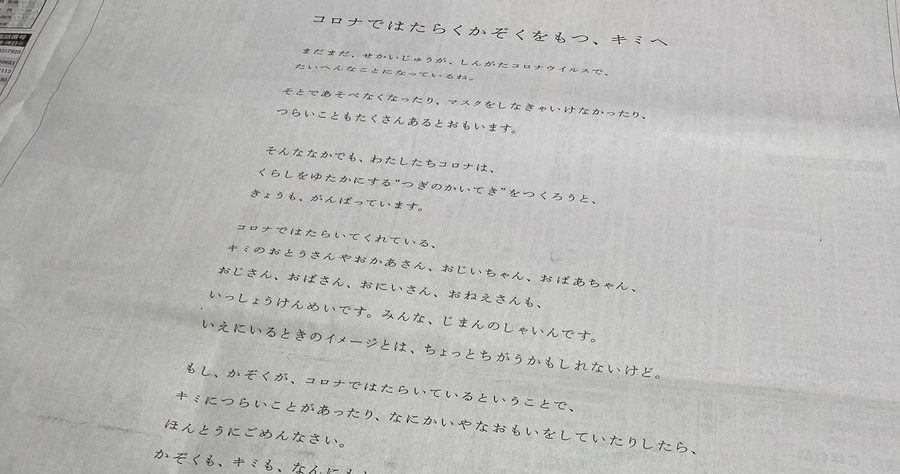 コロナではたらくかぞくをもつ、キミへ
まだまだ、せかいじゅうが、しんがたコロナウイルスで、
たいへんなことになっているね。
そとであそべなくなったり、マスクをしなきゃいけなかったり、
つらいこともたくさんあるとおもいます。
そんななかでも、わたしたちコロナは、
くらしをゆたかにする“つぎのかいてき”をつくろうと、
きょうも、がんばっています。
コロナではたらいてくれている、
キミのおとうさんやおかあさん、おじいちゃん、おばあちゃん、
おじさん、おばさん、おにいさん、おねえさんも、
いっしょうけんめいです。みんな、じまんのしゃいんです。
いえにいるときのイメージとは、ちょっとちがうかもしれないけど。
もし、かぞくが、コロナではたらいているということで、
キミにつらいことがあったり、なにかいやなおもいをしていたりしたら、
ほんとうにごめんなさい。
かぞくも、キミも、なんにも